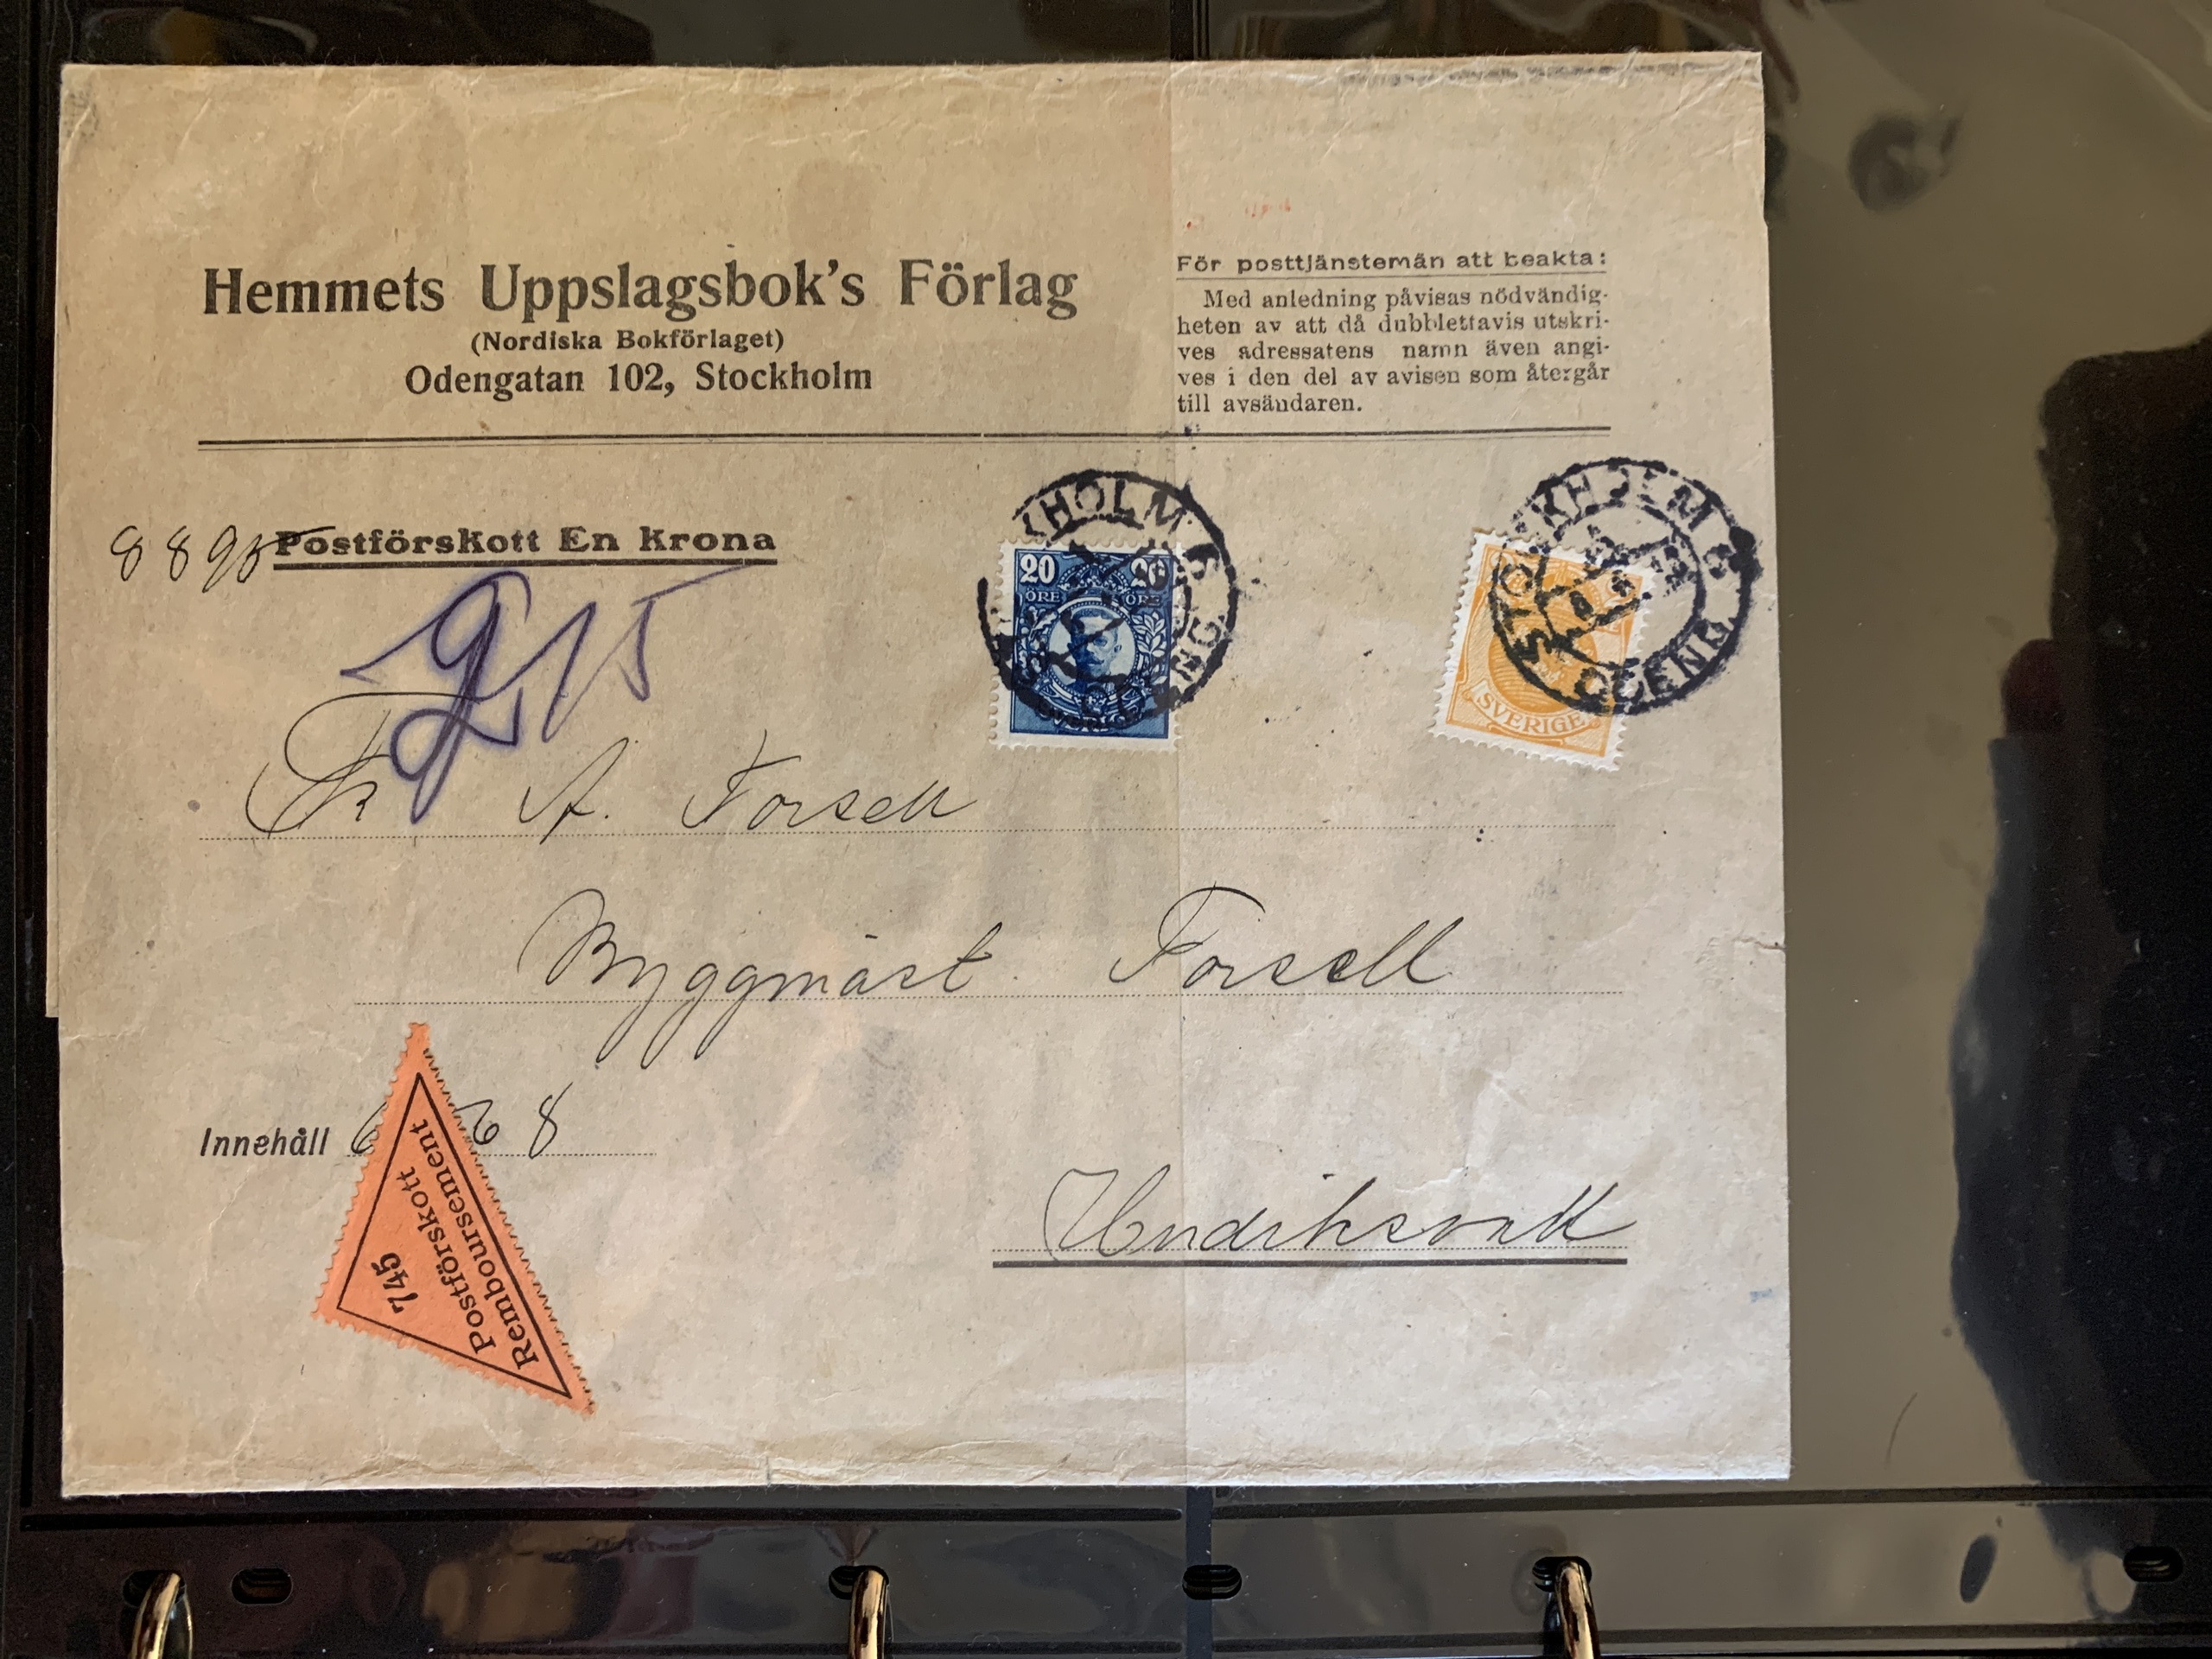 Hemmets Uppslagsbok's Förlag
(Nordiska Bokförlaget)
Odengatan 102, Stockholm
För posttjänstemän att beakta:
Med anledning påvisas nödvändig-
heten av att då dubblettavis utskri-
ves adressatens namn även angi-
ves i den del av avisen som återgår
till avsändaren.
Postförskott En Krona
20 20
ÖRE ÖRE
SVERIGE
KHOLM
STOCKHOLM
ODENG
SVERIGE
915
A. Forsell
Byggmäst. Forsell
Innehåll
8
745
Postförskott
Remboursement
Hudiksvall